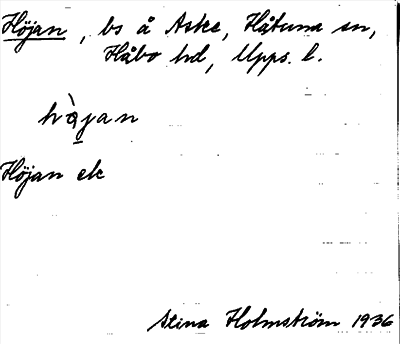 Höjan, bs å Aske, Håtuna sn,
Håbo hd, Upps. l.
hàjan
Höjan ek
Stina Holmström 1936